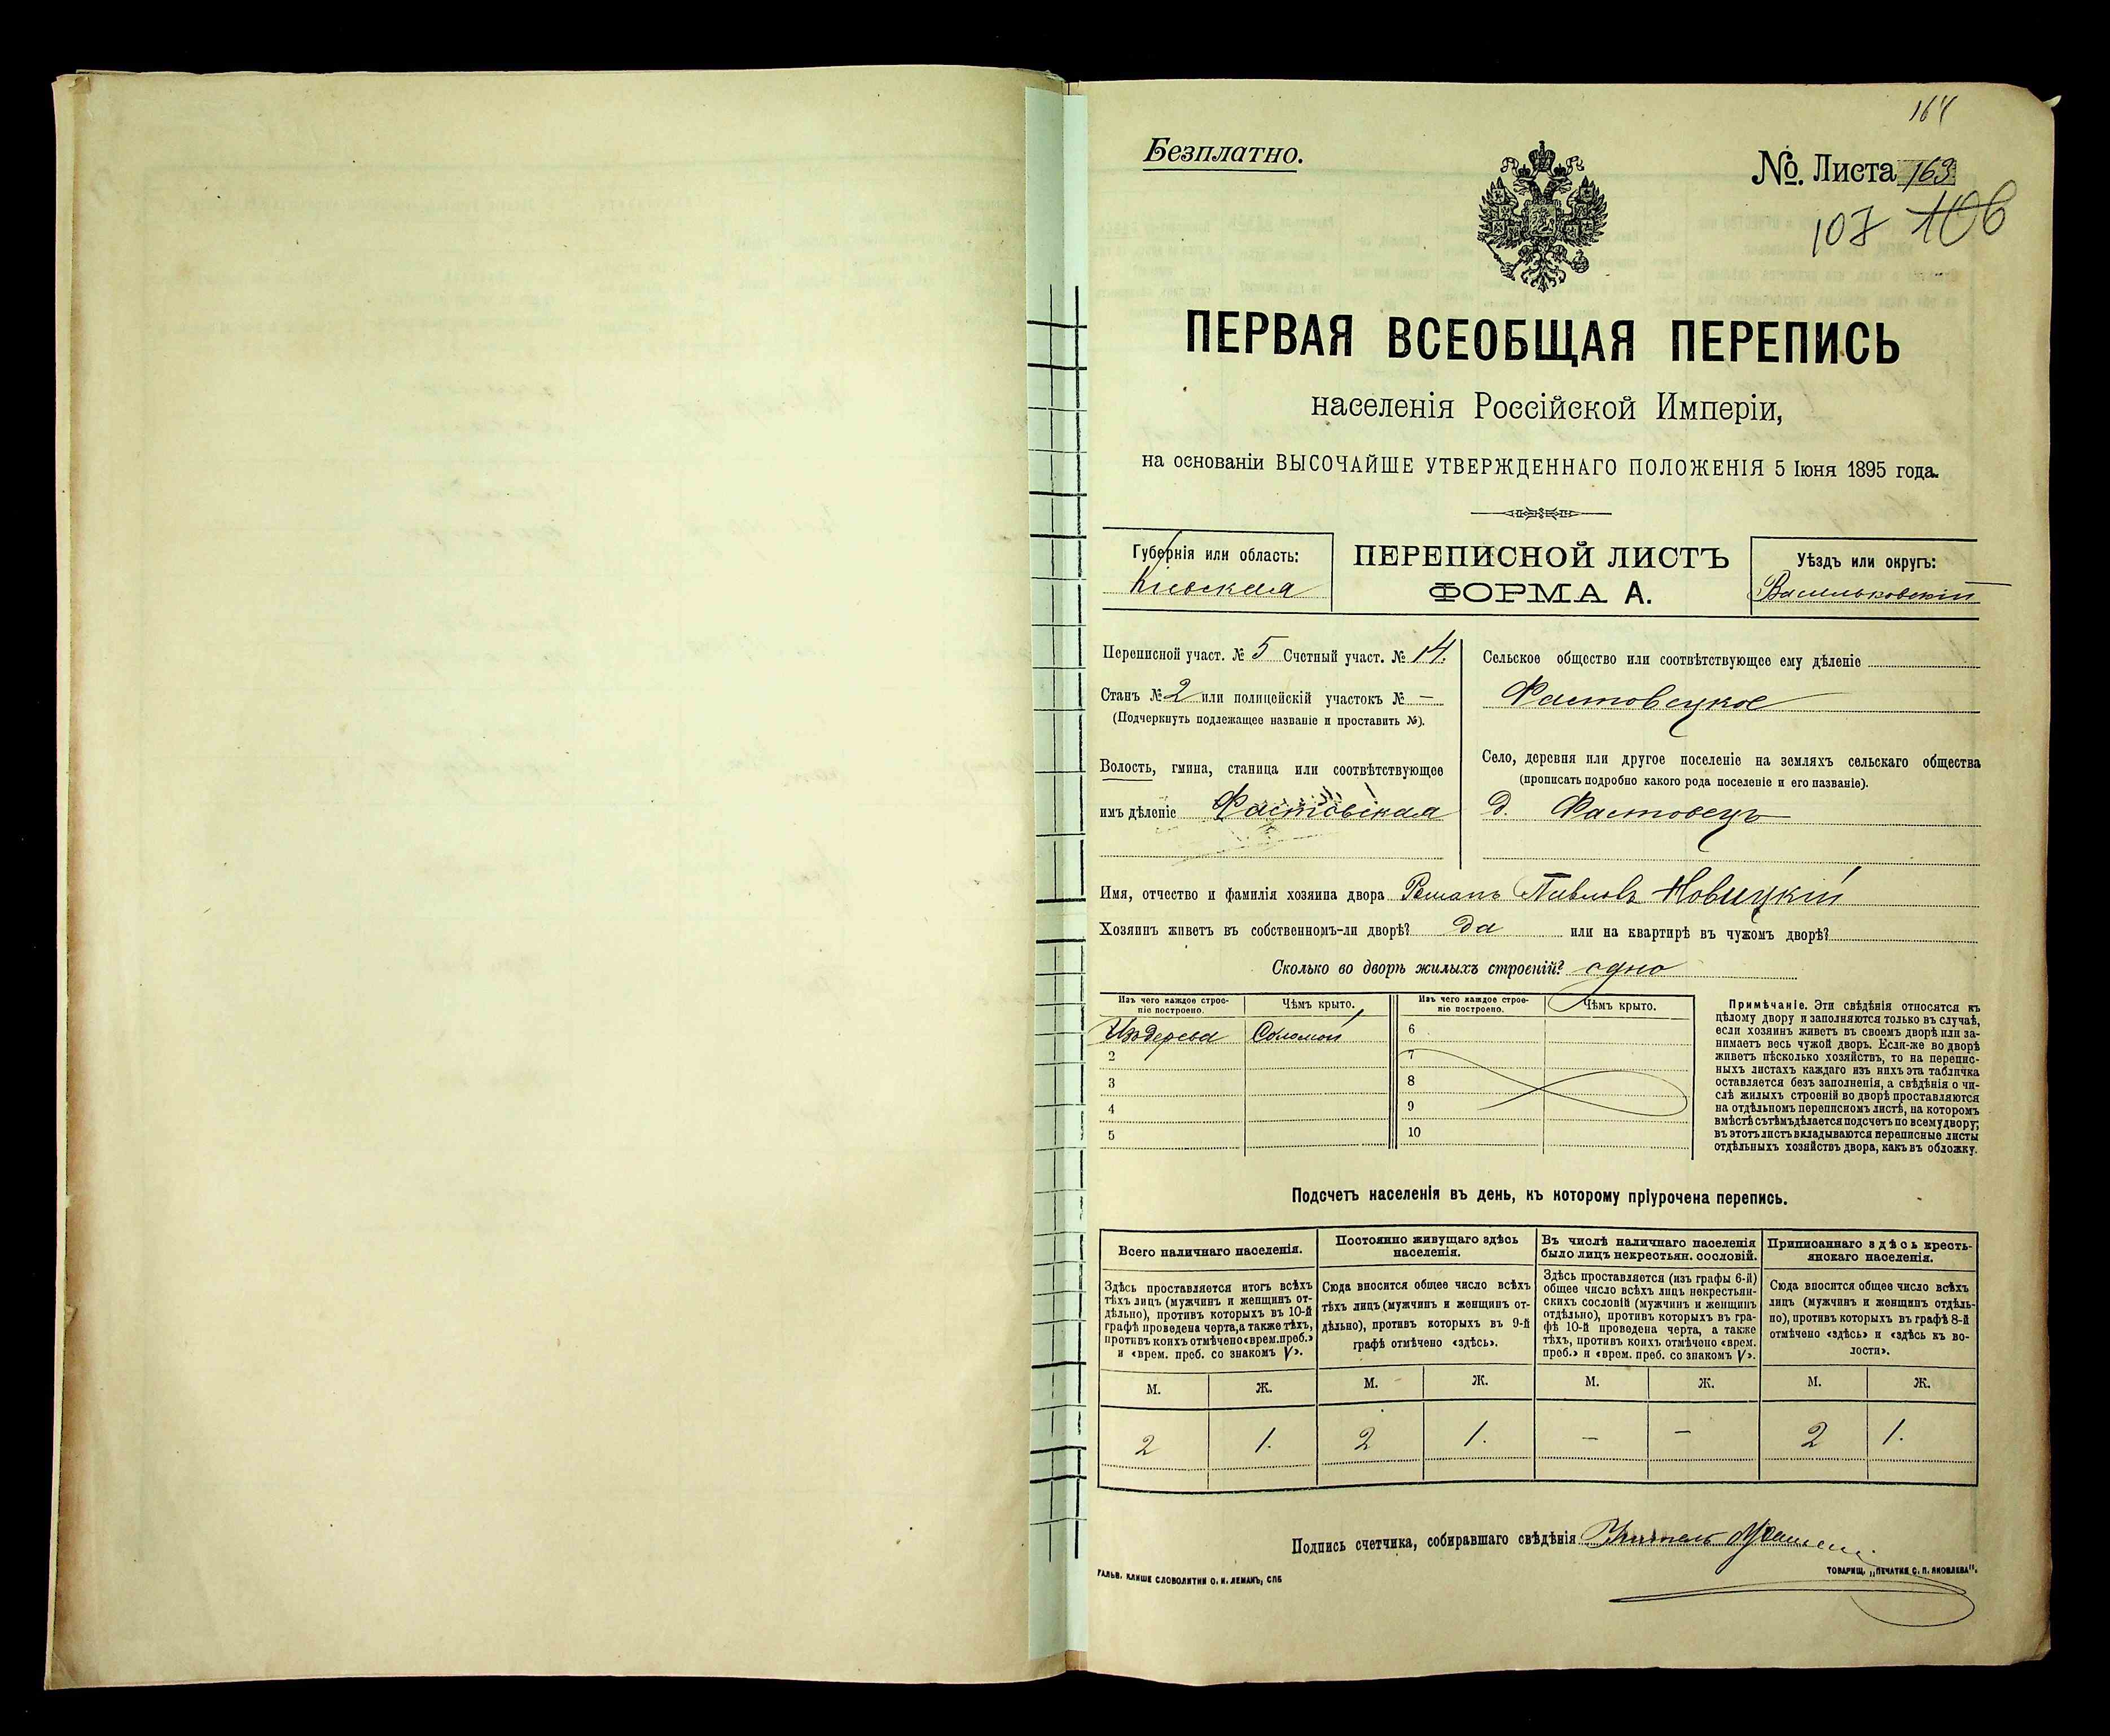 164
Безплатно.
№ Листа 163
107 106
ПЕРВАЯ ВСЕОБЩАЯ ПЕРЕПИСЬ
населенія Россійской Имперіи,
на основаніи ВЫСОЧАЙШЕ УТВЕРЖДЕННАГО ПОЛОЖЕНІЯ 5 Іюня 1895 года.
Губернія или область:
Кіевская
ПЕРЕПИСНОЙ ЛИСТЪ
ФОРМА А.
Уѣздъ или округъ:
Васильковскій
Переписной участ. № 5 Счетный участ. № 14.
Станъ № 2 или полицейскій участокъ № —
(Подчеркнуть подлежащее названіе и проставить №).
Волость, гмина, станица или соотвѣтствующее
имъ дѣленіе Фастовская
Сельское общество или соотвѣтствующее ему дѣленіе
Фастовецкое
Село, деревня или другое поселеніе на земляхъ сельскаго общества
(прописать подробно какого рода поселеніе и его названіе).
д. Фастовецъ
Имя, отчество и фамилія хозяина двора Романъ Павловъ Новицкій
Хозяинъ живетъ въ собственномъ-ли дворѣ? да или на квартирѣ въ чужомъ дворѣ?
Сколько во дворѣ жилыхъ строеній? одно
Изъ чего каждое строе-
ніе построено.
Чѣмъ крыто.
Изъ чего каждое строе-
ніе построено.
Чѣмъ крыто.
Изъ дерева Соломой
2
3
4
5
6
7
8
9
10
Примѣчаніе. Эти свѣдѣнія относятся къ
цѣлому двору и заполняются только въ случаѣ,
если хозяинъ живетъ въ своемъ дворѣ или за-
нимаетъ весь чужой дворъ. Если-же во дворѣ
живетъ нѣсколько хозяйствъ, то на перепис-
ныхъ листахъ каждаго изъ нихъ эта табличка
оставляется безъ заполненія, а свѣдѣнія о чи-
слѣ жилыхъ строеній во дворѣ проставляются
на отдѣльномъ переписномъ листѣ, на которомъ
вмѣстѣ съ тѣмъ дѣлается подсчетъ по всему двору;
въ этотъ листъ вкладываются переписные листы
отдѣльныхъ хозяйствъ двора, какъ въ обложку.
Подсчетъ населенія въ день, къ которому пріурочена перепись.
Всего наличнаго населенія.
Здѣсь проставляется итогъ всѣхъ
тѣхъ лицъ (мужчинъ и женщинъ от-
дѣльно), противъ которыхъ въ 10-й
графѣ проведена черта, а также тѣхъ,
противъ коихъ отмѣчено «врем. преб.»
и «врем. преб. со знакомъ V».
Постоянно живущаго здѣсь
населенія.
Сюда вносится общее число всѣхъ
тѣхъ лицъ (мужчинъ и женщинъ от-
дѣльно), противъ которыхъ въ 9-й
графѣ отмѣчено «здѣсь».
Въ числѣ наличнаго населенія
было лицъ некрестьян. сословій.
Здѣсь проставляется (изъ графы 6-й)
общее число всѣхъ лицъ некрестьян-
скихъ сословій (мужчинъ и женщинъ
отдѣльно), противъ которыхъ въ гра-
фѣ 10-й проведена черта, а также
тѣхъ, противъ коихъ отмѣчено «врем.
преб.» и «врем. преб. со знакомъ V».
Приписаннаго здѣсь кресть-
янскаго населенія.
Сюда вносится общее число всѣхъ
лицъ (мужчинъ и женщинъ отдѣль-
но), противъ которыхъ въ графѣ 8-й
отмѣчено «здѣсь» и «здѣсь къ во-
лости».
М. Ж. М. Ж. М. Ж. М. Ж.
2 1. 2 1. — — 2 1.
Подпись счетчика, собиравшаго свѣдѣнія Учитель
ГАЛЬВ. КЛИШЕ СЛОВОЛИТНИ О. И. ЛЕМАНЪ, СПБ
ТОВАРИЩ. „ПЕЧАТНЯ С. П. ЯКОВЛЕВА".